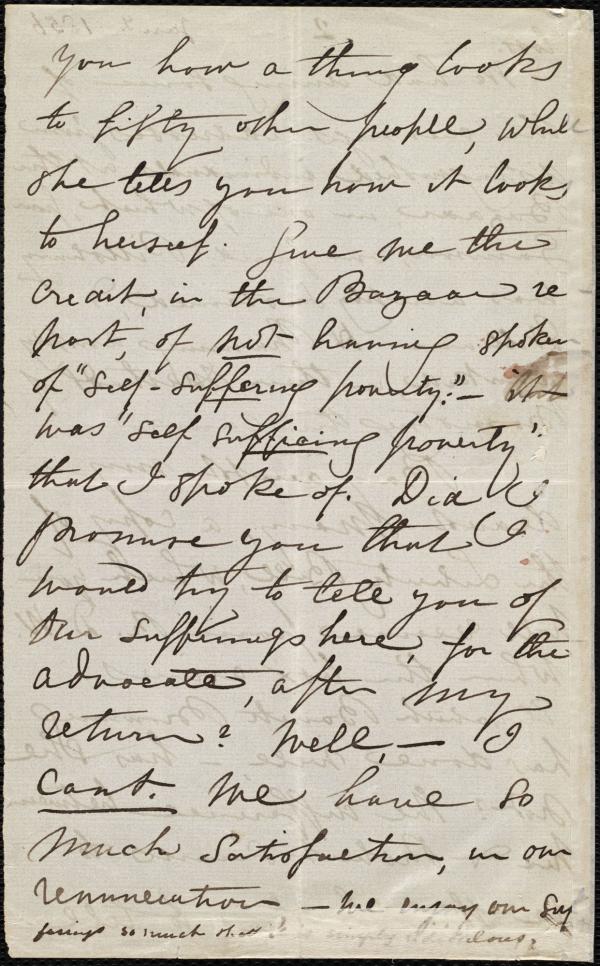 you how a thing looks
to fifty other people, while
she tells you how it looks
to herself. Give me the
credit, in the Bazaar re
port, of not having spoken
of "self-suffering poverty:" — it
was "self sufficing poverty"
that I spoke of. Did I
promise you that I
would try to tell you of
our sufferings here, for the
advocate, after my
return? Well, — I
cant. We have so
much satisfaction, in our
renunciation — we enjoy our suf
ferings so much that it simply ridiculous.